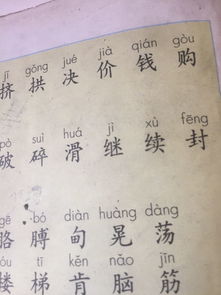 jǐ gǒng jué jià qián gòu
挤 拱 决 价 钱 购
pò suì huá jì xù fēng
破 碎 滑 继 续 封
gē bó diàn huàng dàng
胳 膊 甸 晃 荡
óu tī kěn nǎo jīn
楼 梯 肯 脑 筋